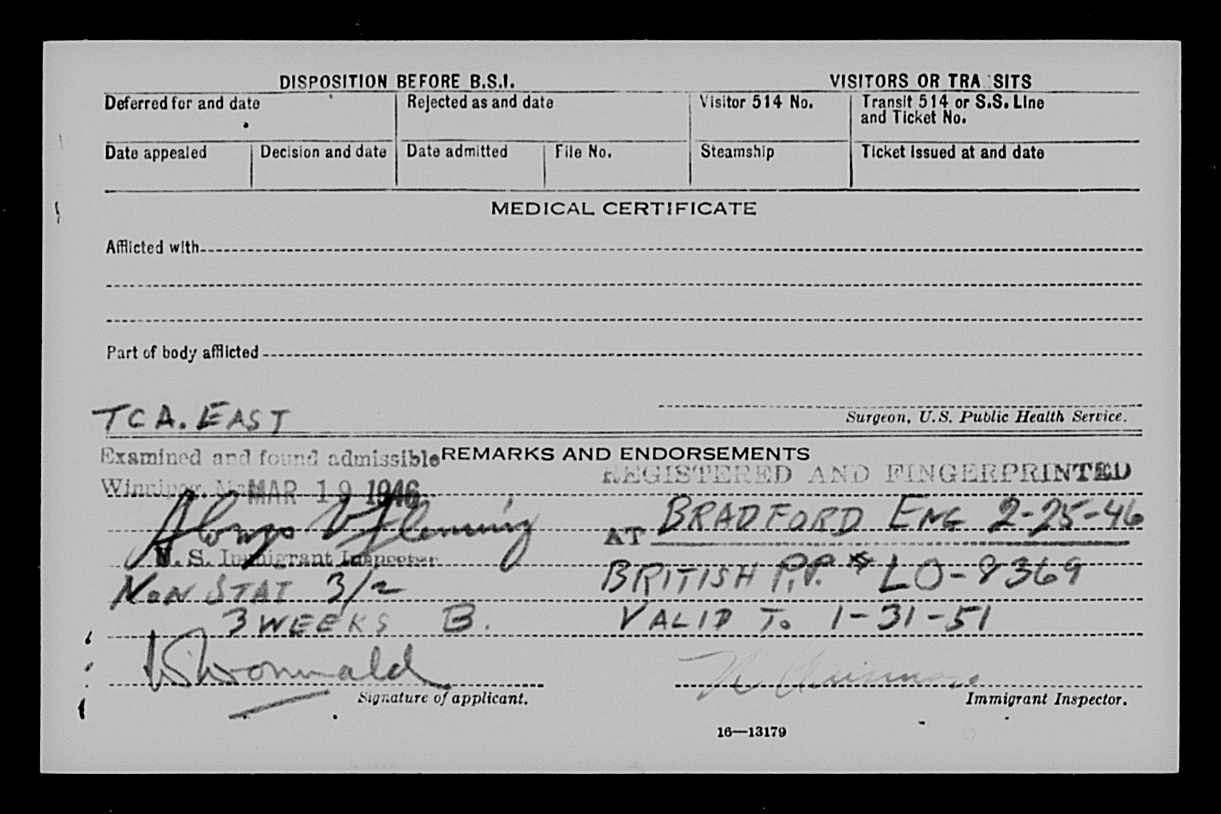 DISPOSITION BEFORE B.S.I. VISITORS OR TRA SITS
Deferred for and date Rejected as and date Visitor 514 No. Transit 514 or S.S. Line and Ticket No.
Date appealed Decision and date Date admitted File No. Steamship Ticket issued at and date
MEDICAL CERTIFICATE
Afflicted with
Part of body afflicted
Surgeon, U.S. Public Health Service.
TCA. EAST
REMARKS AND ENDORSEMENTS
Examined and found admissible
Winnipeg, Ma MAR 19 1946
Alonzo V Fleming
U. S. Immigrant Inspector
NON STAT 3/2
3 WEEKS B.
REGISTERED AND FINGERPRINTED
AT BRADFORD ENG 2-25-46
BRITISH P.P. # LO-8369
VALID TO 1-31-51
Signature of applicant.
Immigrant Inspector.
16—13179